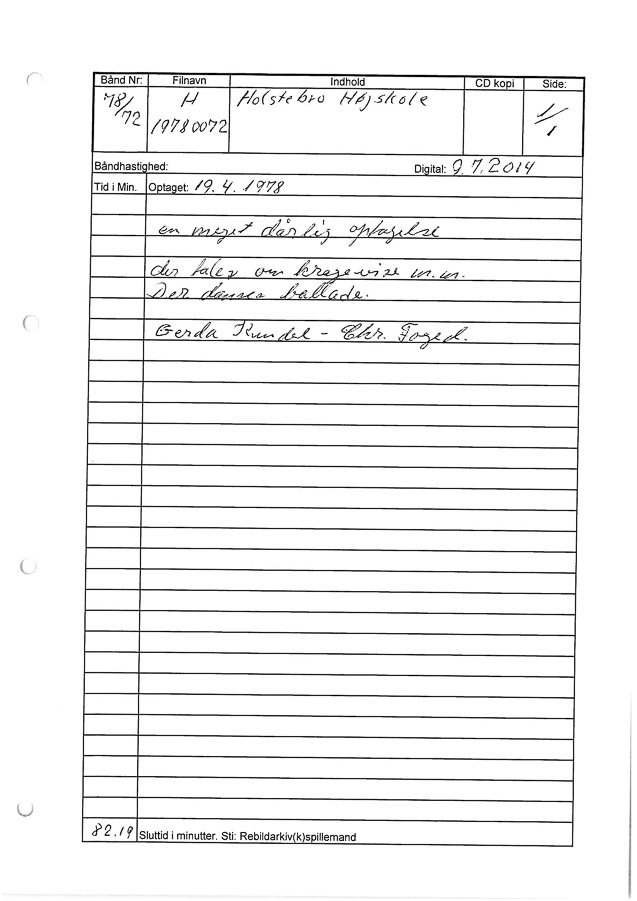 Bånd Nr: Filnavn Indhold CD kopi Side:
78/72 H Holstebro Højskole 1/1
19780072
Båndhastighed: Digital: 9.7.2014
Tid i Min. Optaget: 19.4.1978
en meget dårlig optagelse
der tales om kragevise m.m.
Der danses ballade.
Gerda Kundel - Chr. Foged.
82.19 Sluttid i minutter. Sti: Rebildarkiv(k)spillemand